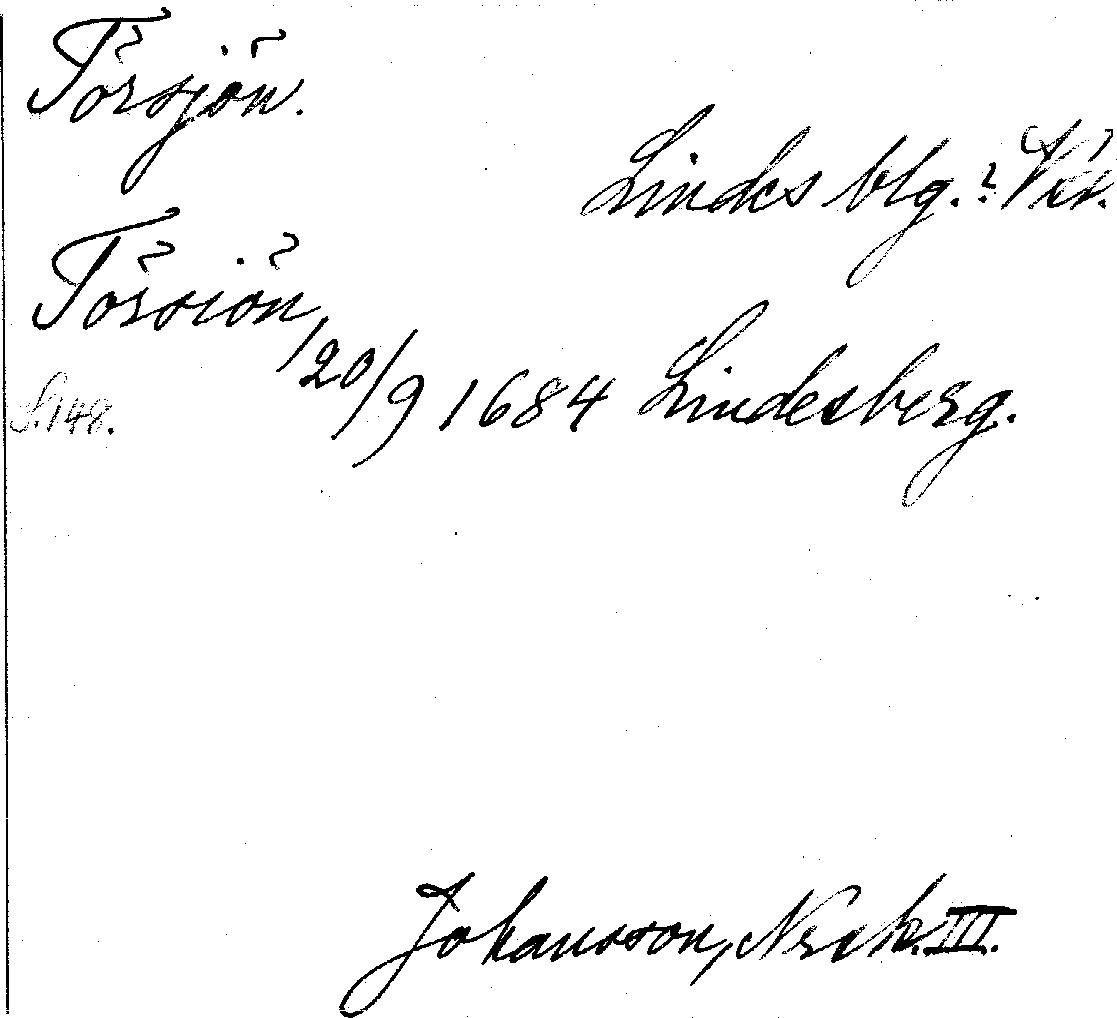 Törsjön.
Lindes blg.? Vstm.
Törsiön,
20/9 1684 Lindesberg.
S. 148.
Johansson, Nrsk. III.